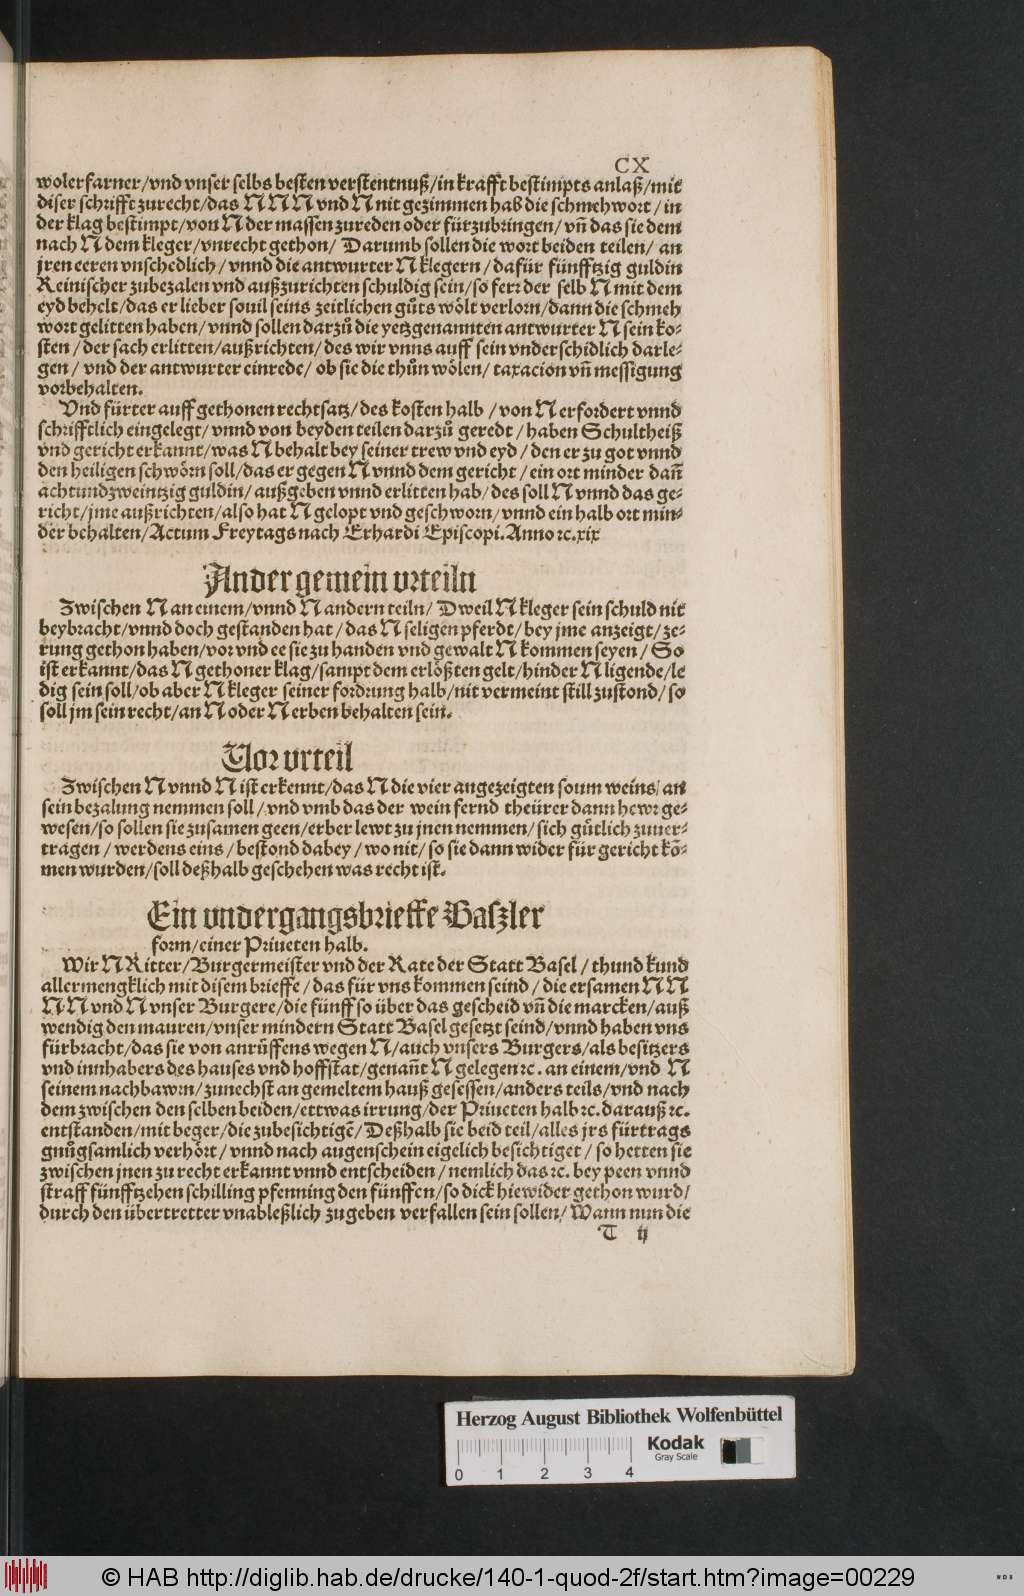 CX
wolerfarner/vnd vnser selbs besten verstentnuß/in krafft bestimpts anlaß/mit
diser schrifft zurecht/das N N N vnd N nit gezimmen hab die schmehwort/in
der klag bestimpt/von N der massen zureden oder fürzubringen/vñ das sie dem
nach N dem kleger/vnrecht gethon/Darumb sollen die wort beiden teilen/an
jren eeren vnschedlich/vnnd die antwurter N klegern/dafür fünfftzig guldin
Reinischer zubezalen vnd außzurichten schuldig sein/so ferr der selb N mit dem
eyd behelt/das er lieber souil seins zeitlichen gůts wölt verlorn/dann die schmeh
wort gelitten haben/vnnd sollen darzů die yetzgenannten antwurter N sein ko-
sten/der sach erlitten/außrichten/des wir vnns auff sein vnderschidlich darle-
gen/vnd der antwurter einrede/ob sie die thůn wölen/taxacion vñ messigung
vorbehalten.
Vnd fürter auff gethonen rechtsatz/des kosten halb/von N erfordert vnnd
schrifftlich eingelegt/vnnd von beyden teilen darzů geredt/haben Schultheiß
vnd gericht erkannt/was N behalt bey seiner trew vnd eyd/den er zu got vnnd
den heiligen schwörn soll/das er gegen N vnnd dem gericht/ein ort minder dañ
achtundzweintzig guldin/außgeben vnnd erlitten hab/des soll N vnnd das ge-
richt/jme außrichten/also hat N gelopt vnd geschworn/vnnd ein halb ort min-
der behalten/Actum Freytags nach Erhardi Episcopi. Anno ꝛc. xix
Ander gemein vrteiln
Zwischen N an einem/vnnd N andern teiln/Dweil N kleger sein schuld nit
beybracht/vnnd doch gestanden hat/das N seligen pferdt/bey jme anzeigt/ze-
rung gethon haben/vor vnd ee sie zu handen vnd gewalt N kommen seyen/So
ist erkannt/das N gethoner klag/sampt dem erlößten gelt/hinder N ligende/le
dig sein soll/ob aber N kleger seiner fordrung halb/nit vermeint still zustond/so
soll jm sein recht/an N oder N erben behalten sein.
Vor vrteil
Zwischen N vnnd N ist erkennt/das N die vier angezeigten soum weins/an
sein bezalung nemmen soll/vnd vmb das der wein fernd theürer dann hewr ge-
wesen/so sollen sie zusamen geen/erber lewt zu jnen nemmen/sich gütlich zuuer-
tragen/werdens eins/bestond dabey/wo nit/so sie dann wider für gericht kõ-
men wurden/soll deßhalb geschehen was recht ist.
Ein vndergangsbrieffe Baszler
form/einer Priueten halb.
Wir N Ritter/Burgermeister vnd der Rate der Statt Basel/thund kund
allermengklich mit disem brieffe/das für vns kommen seind/die ersamen N N
N N vnd N vnser Burgere/die fünff so über das gescheid vñ die marcken/auß
wendig den mauren/vnser mindern Statt Basel gesetzt seind/vnnd haben vns
fürbracht/das sie von anrüffens wegen N/auch vnsers Burgers/als besitzers
vnd innhabers des hauses vnd hoffstat/genañt N gelegen ꝛc. an einem/vnd N
seinem nachbawrn/zunechst an gemeltem hauß gesessen/anders teils/vnd nach
dem zwischen den selben beiden/ettwas irrung/der Priueten halb ꝛc. darauß ꝛc.
entstanden/mit beger/die zubesichtigẽ/Deßhalb sie beid teil/alles jrs fürtrags
gnůgsamlich verhört/vnnd nach augenschein eigelich besichtiget/so hetten sie
zwischen jnen zu recht erkannt vnnd entscheiden/nemlich das ꝛc. bey peen vnnd
straff fünfftzehen schilling pfenning den fünffen/so dick hiewider gethon wurd/
durch den übertretter vnableßlich zugeben verfallen sein sollen/Wann nun die
T ij
Herzog August Bibliothek Wolfenbüttel
Kodak
Gray Scale
0 1 2 3 4
© HAB http://diglib.hab.de/drucke/140-1-quod-2f/start.htm?image=00229